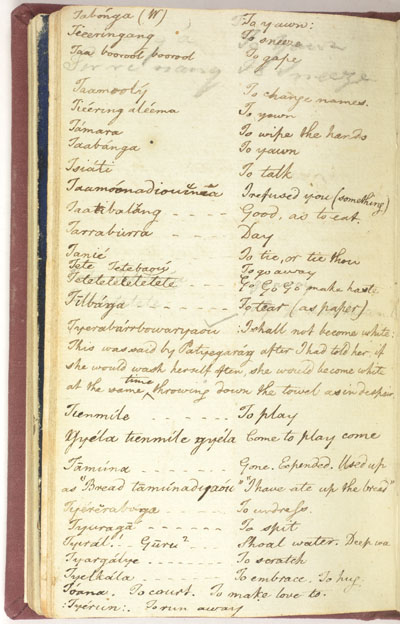 Tabónga (W) To yawn:
Téeringang To sneeze
Taa boorood boorood To gape
Taamooléy To change names.
Tiéering áléema To yawn
Támara To wipe the hands
Taabánga To yawn
Tsiáti To talk
I refused you (something)
- - - - Good, as to eat.
Tarrabúrra Day
Tanié To tie, or tie thou
Tete Tetebaoú To go away
Tetetetetetete - - Go Go Go make haste
Tilbánga - - - - To tear (as paper)
Tyerabárrbowaryaou : I shall not become white:
This was said by Patyegarang after I had told her, if
she would wash herself often, she would become white
at the same time throwing down the towel as in despair.
Tienmíle - - - To play
Gyéla tienmíle gyéla Come to play come
Tamúna - - - - - - Gone. Expended. Used up
as "Bread tamúnadyaóu" "I have ate up the bread"
- - - - - To undress.
Tyuraga - - - - - To spit
Tyrál! Gūru? - - - Shoal water. Deep wa
Tyargálye - - - - To scratch
Tyelkála - - - - - To embrace. To hug.
Tóana. To court. To make love to.
Tyérun:. To run away